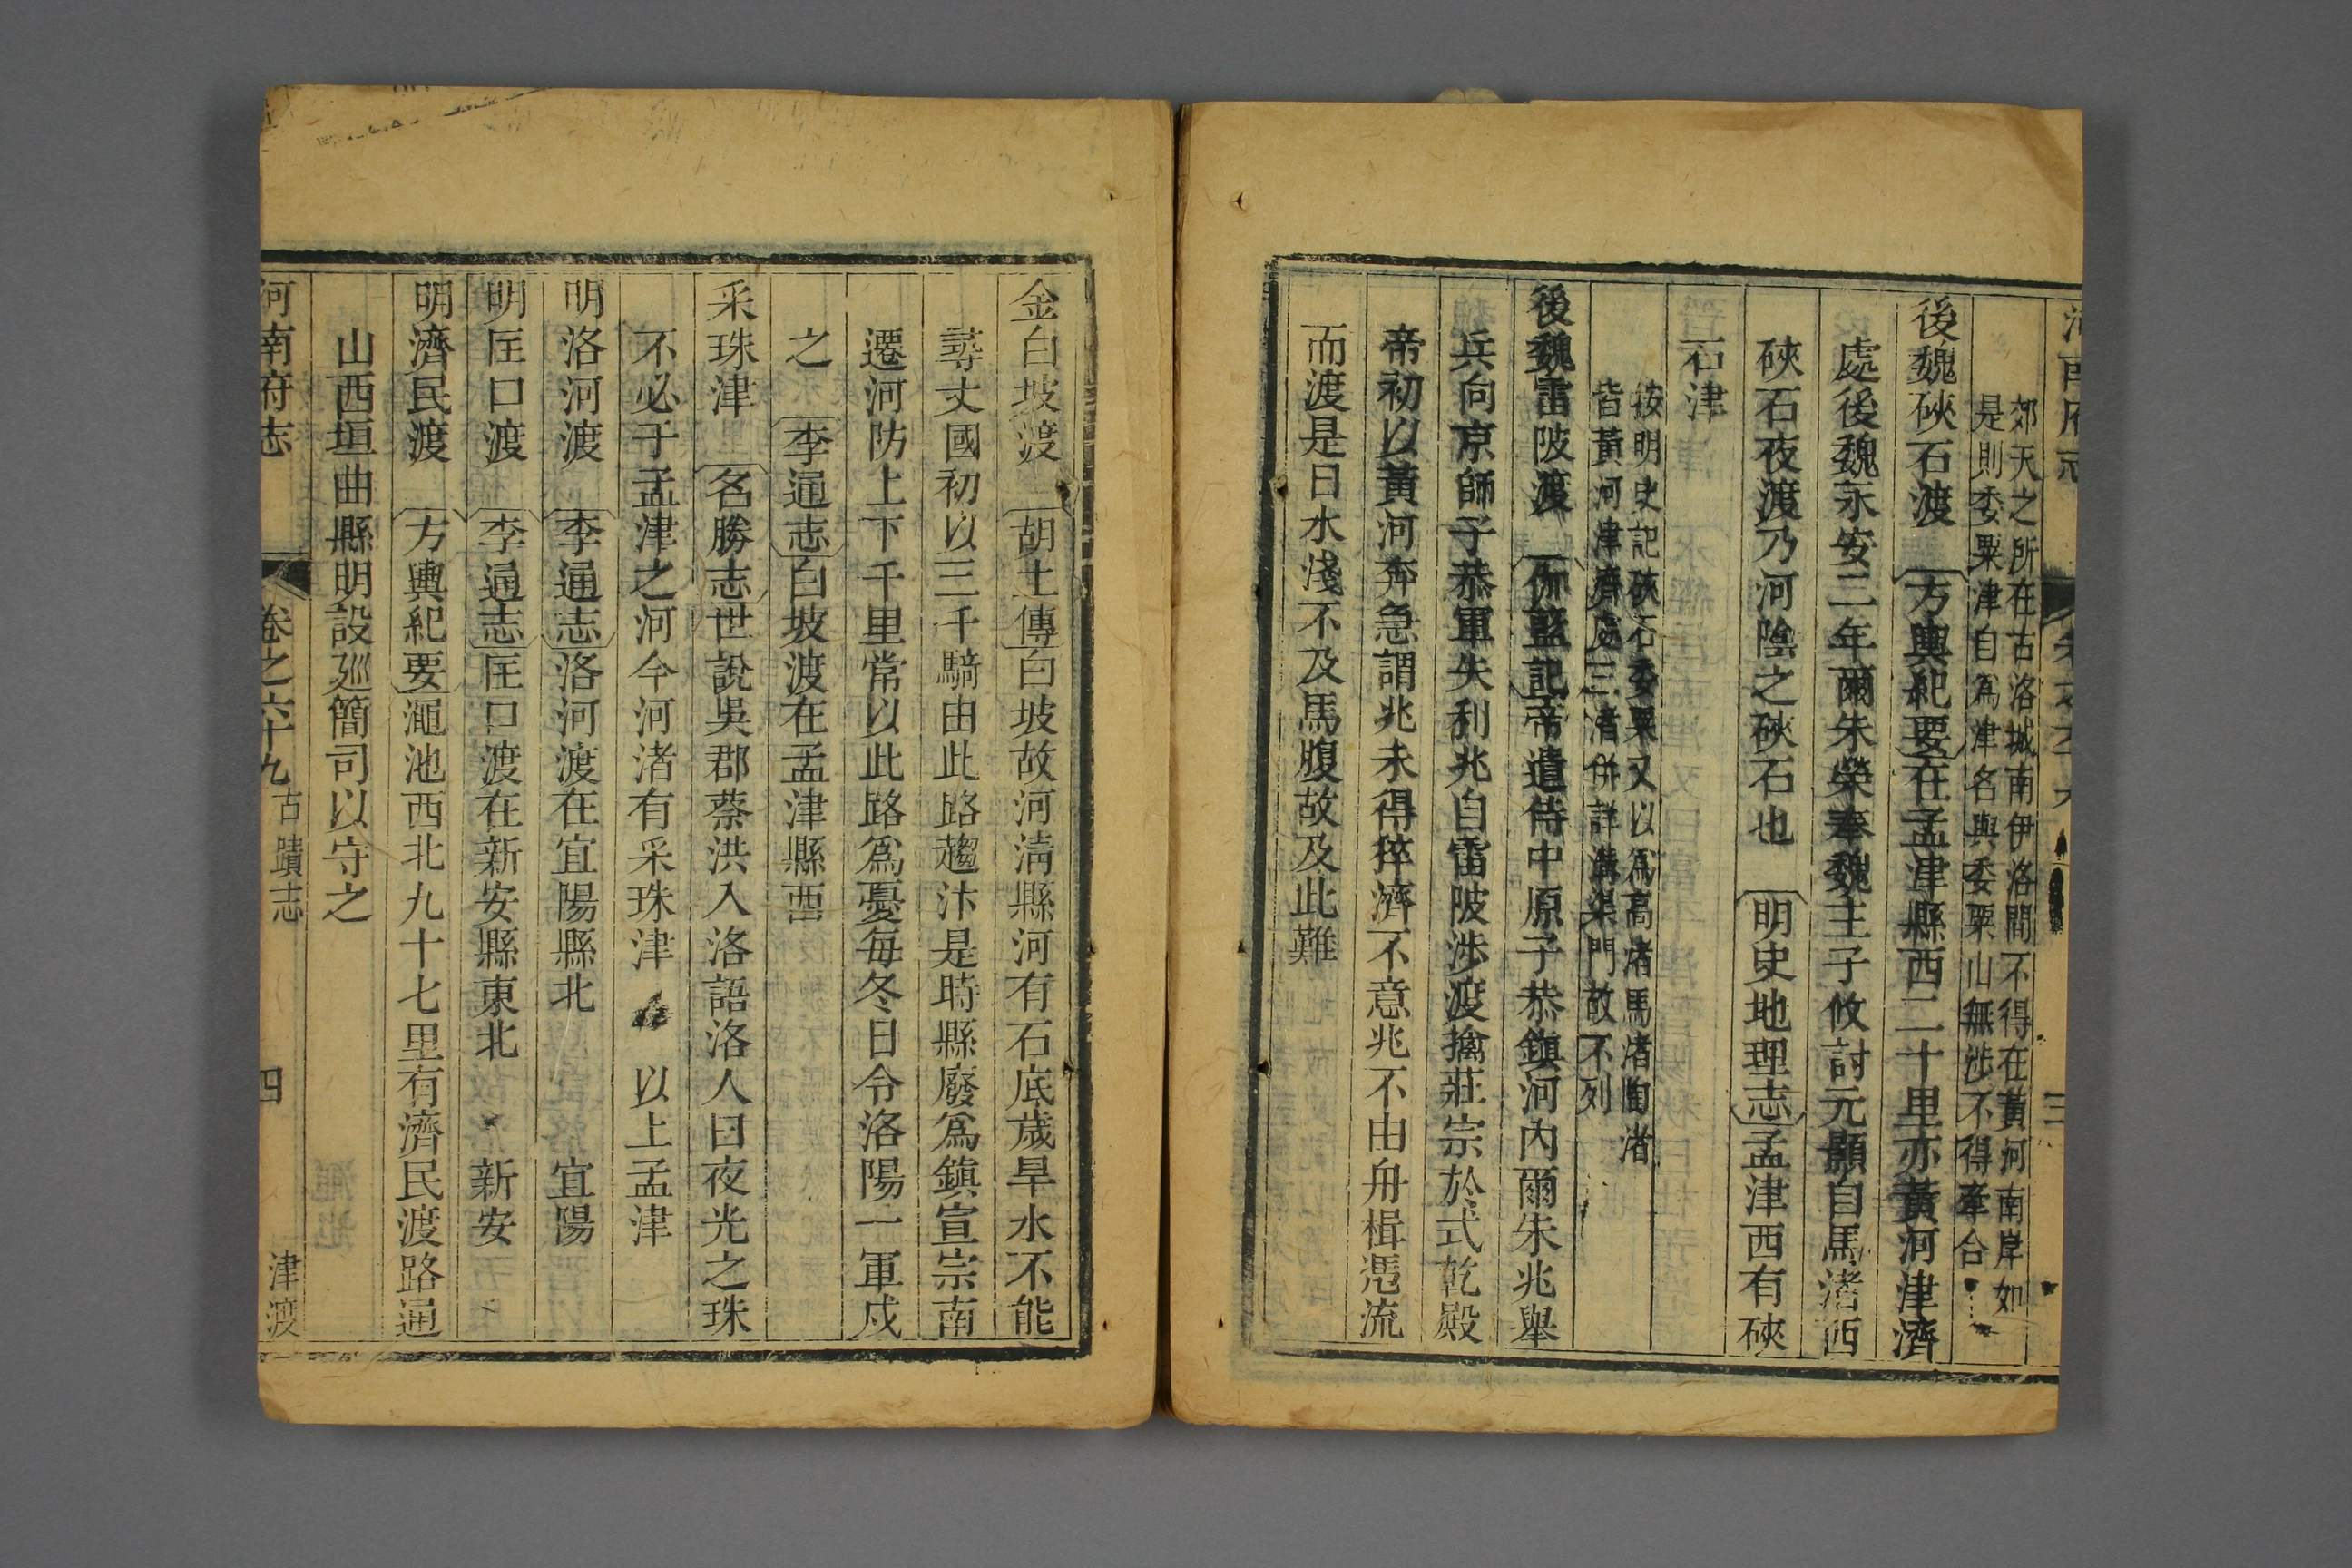 郊天之所在古洛城南伊洛間不得在黃河南岸如
是則委粟津自爲津名與委粟山無涉不得牽合
後魏硤石渡 方輿紀要在孟津縣西二十里亦黃河津濟
處後魏永安二年爾朱榮奉魏主子攸討元顥自馬渚西
硤石夜渡乃河陰之硤石也 明史地理志孟津西有硤
石津
按明史記硤石委粟又以爲高渚馬渚陶渚
皆黃河津濟處三渚併詳溝渠門故不列
後魏雷陂渡 伽藍記帝遣侍中原子恭鎮河內爾朱兆舉
兵向京師子恭軍失利兆自雷陂涉渡擒莊宗於式乾殿
帝初以黃河奔急謂兆未得猝濟不意兆不由舟楫凴流
而渡是日水淺不及馬腹故及此難
金白坡渡 胡土傳白坡故河淸縣河有石底歲旱水不能
尋丈國初以三千騎由此路趨汴是時縣廢爲鎮宣宗南
遷河防上下千里常以此路爲憂每冬日令洛陽一軍戍
之 李通志白坡渡在孟津縣西
采珠津 名勝志世說吳郡蔡洪入洛語洛人曰夜光之珠
不必于孟津之河今河渚有采珠津 以上孟津
明洛河渡 李通志洛河渡在宜陽縣北 宜陽
明匡口渡 李通志匡口渡在新安縣東北 新安
明濟民渡 方輿紀要澠池西北九十七里有濟民渡路通
山西垣曲縣明設廵簡司以守之
河南府志 卷之六十九 古蹟志 四 津渡